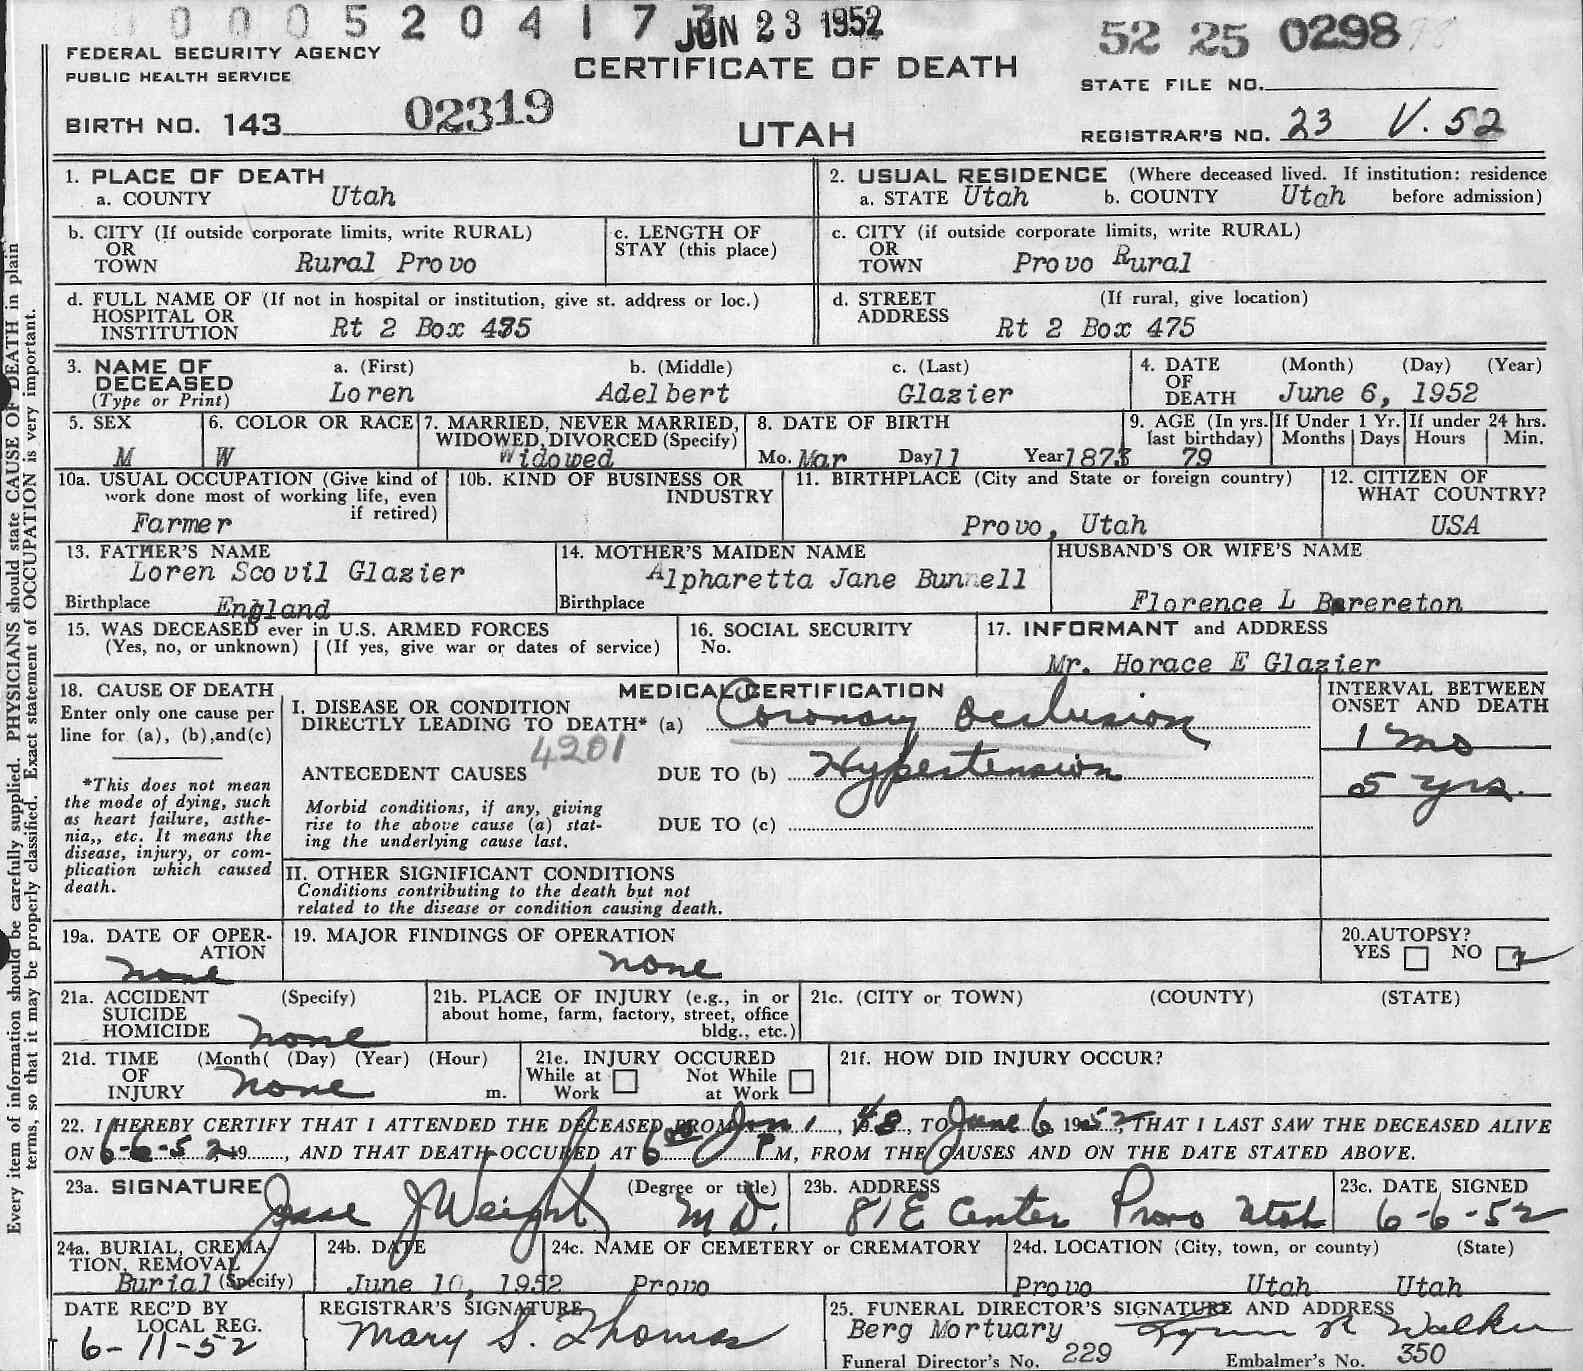 0 0 0 5 2 0 4 1 7
JUN 23 1952
52 25 0298
FEDERAL SECURITY AGENCY
PUBLIC HEALTH SERVICE
CERTIFICATE OF DEATH
STATE FILE NO.
BIRTH NO. 143 02319
UTAH
REGISTRAR'S NO. 23 V. 52
1. PLACE OF DEATH
a. COUNTY Utah
2. USUAL RESIDENCE (Where deceased lived. If institution: residence
a. STATE Utah b. COUNTY Utah before admission)
b. CITY (If outside corporate limits, write RURAL)
OR
TOWN Rural Provo
c. LENGTH OF
STAY (this place)
c. CITY (if outside corporate limits, write RURAL)
OR
TOWN Provo Rural
d. FULL NAME OF (If not in hospital or institution, give st. address or loc.)
HOSPITAL OR
INSTITUTION Rt 2 Box 475
d. STREET (If rural, give location)
ADDRESS Rt 2 Box 475
3. NAME OF a. (First) b. (Middle) c. (Last)
DECEASED
(Type or Print) Loren Adelbert Glazier
4. DATE (Month) (Day) (Year)
OF
DEATH June 6, 1952
5. SEX
M
6. COLOR OR RACE
W
7. MARRIED, NEVER MARRIED,
WIDOWED, DIVORCED (Specify)
Widowed
8. DATE OF BIRTH
Mo. Mar Day 11 Year 1873
9. AGE (In yrs.
last birthday)
79
If Under 1 Yr.
Months Days
If under 24 hrs.
Hours Min.
10a. USUAL OCCUPATION (Give kind of
work done most of working life, even
if retired)
Farmer
10b. KIND OF BUSINESS OR
INDUSTRY
11. BIRTHPLACE (City and State or foreign country)
Provo, Utah
12. CITIZEN OF
WHAT COUNTRY?
USA
13. FATHER'S NAME
Loren Scovil Glazier
Birthplace England
14. MOTHER'S MAIDEN NAME
Alpharetta Jane Bunnell
Birthplace
HUSBAND'S OR WIFE'S NAME
Florence L Brereton
15. WAS DECEASED ever in U.S. ARMED FORCES
(Yes, no, or unknown) (If yes, give war or dates of service)
16. SOCIAL SECURITY
No.
17. INFORMANT and ADDRESS
Mr. Horace E Glazier
18. CAUSE OF DEATH
Enter only one cause per
line for (a), (b),and(c)
*This does not mean
the mode of dying, such
as heart failure, asthe-
nia,, etc. It means the
disease, injury, or com-
plication which caused
death.
MEDICAL CERTIFICATION
I. DISEASE OR CONDITION
DIRECTLY LEADING TO DEATH* (a) Coronary Occlusion
4201
ANTECEDENT CAUSES DUE TO (b) Hypertension
Morbid conditions, if any, giving
rise to the above cause (a) stat-
ing the underlying cause last.
DUE TO (c)
INTERVAL BETWEEN
ONSET AND DEATH
1 mo
5 yrs.
II. OTHER SIGNIFICANT CONDITIONS
Conditions contributing to the death but not
related to the disease or condition causing death.
19a. DATE OF OPER-
ATION
none
19. MAJOR FINDINGS OF OPERATION
none
20.AUTOPSY?
YES NO
21a. ACCIDENT (Specify)
SUICIDE
HOMICIDE none
21b. PLACE OF INJURY (e.g., in or
about home, farm, factory, street, office
bldg., etc.)
21c. (CITY or TOWN) (COUNTY) (STATE)
21d. TIME (Month( (Day) (Year) (Hour)
OF
INJURY none m.
21e. INJURY OCCURED
While at Not While
Work at Work
21f. HOW DID INJURY OCCUR?
22. I HEREBY CERTIFY THAT I ATTENDED THE DECEASED FROM Jan 1, 1948, TO June 6 1952, THAT I LAST SAW THE DECEASED ALIVE
ON 6-6-52, 19, AND THAT DEATH OCCURED AT 6 P M, FROM THE CAUSES AND ON THE DATE STATED ABOVE.
23a. SIGNATURE (Degree or title)
Jesse J Weight M D.
23b. ADDRESS
81 E Center Provo Utah
23c. DATE SIGNED
6-6-52
24a. BURIAL, CREMA-
TION, REMOVAL
Burial (Specify)
24b. DATE
June 10, 1952
24c. NAME OF CEMETERY or CREMATORY
Provo
24d. LOCATION (City, town, or county) (State)
Provo Utah Utah
DATE REC'D BY
LOCAL REG.
6-11-52
REGISTRAR'S SIGNATURE
Mary S. Thomas
25. FUNERAL DIRECTOR'S SIGNATURE AND ADDRESS
Berg Mortuary Walker
Funeral Director's No. 229 Embalmer's No. 350
Every item of information should be carefully supplied. PHYSICIANS should state CAUSE OF DEATH in plain
terms, so that it may be properly classified. Exact statement of OCCUPATION is very important.